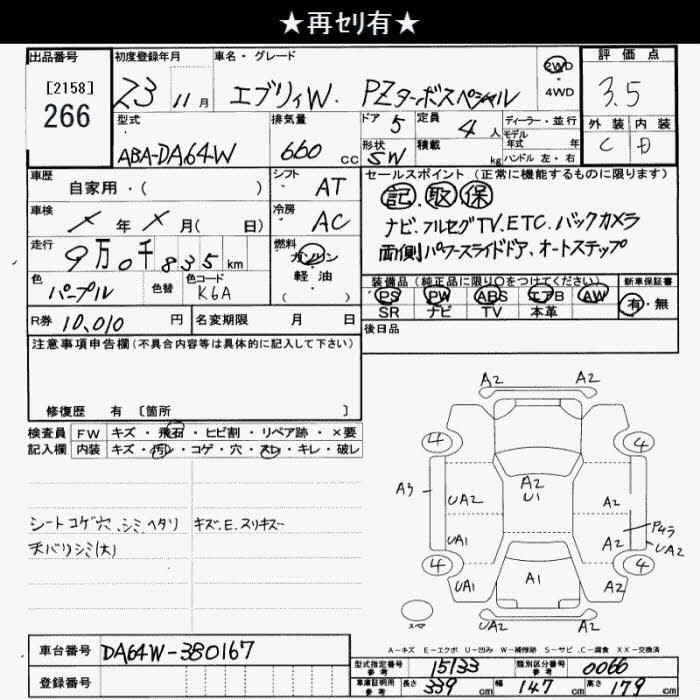 ★再ｾﾘ有★
出品番号
[2158]
266
初度登録年月
23 11月
車名・グレード
エブリィW. PZターボスペシャル
2WD
・
4WD
評価点
3.5
外装 内装
C D
型式
ABA-DA64W
排気量
660 cc
ドア 5
定員 4 人
形状 SW
積載 kg
ディーラー・並行
モデル
年式 年
ハンドル 左・右
車歴
自家用・( )
シフト AT
車検 メ 年 メ 月( 日)
冷房 AC
走行 9万0千835km
燃料
ガソリン
・
軽油
色 パープル
色替
色コード K6A
R券 10,010 円
名変期限 月 日
セールスポイント (正常に機能するものに限ります)
記.取保
ナビ.フルセグTV.ETC.バックカメラ
両側パワースライドドア、オートステップ
装備品 (純正品に限り○をつけてください)
PS PW ABS エアB AW
SR ナビ TV 本革
新車保証書
有・無
後日品
注意事項申告欄 (不具合内容等は具体的に記入して下さい)
修復歴 有 [箇所 ]
検査員
記入欄
FW キズ・飛石・ヒビ割・リペア跡・×要
内装 キズ・汚れ・コゲ・穴・スレ・キレ・破レ
シートコゲ穴、シミ、ヘタリ
天バリシミ(大)
キズ.E.スリキズ
A2 A2
4 4
A3
UA2
A2
U1
A2
UA1
A2
P4ラ
UA2
4 4
UA1
A1
A2
UA2 A2
スペア
A-キズ E-エクボ U-凹み W-補修跡 S-サビ C-腐食 XX-交換済
車台番号 DA64W-380167
登録番号
型式指定番号
参考
15133
類別区分番号
参考
0066
車庫証明用
参考
長さ 339 cm
幅 147 cm
高さ 179 cm